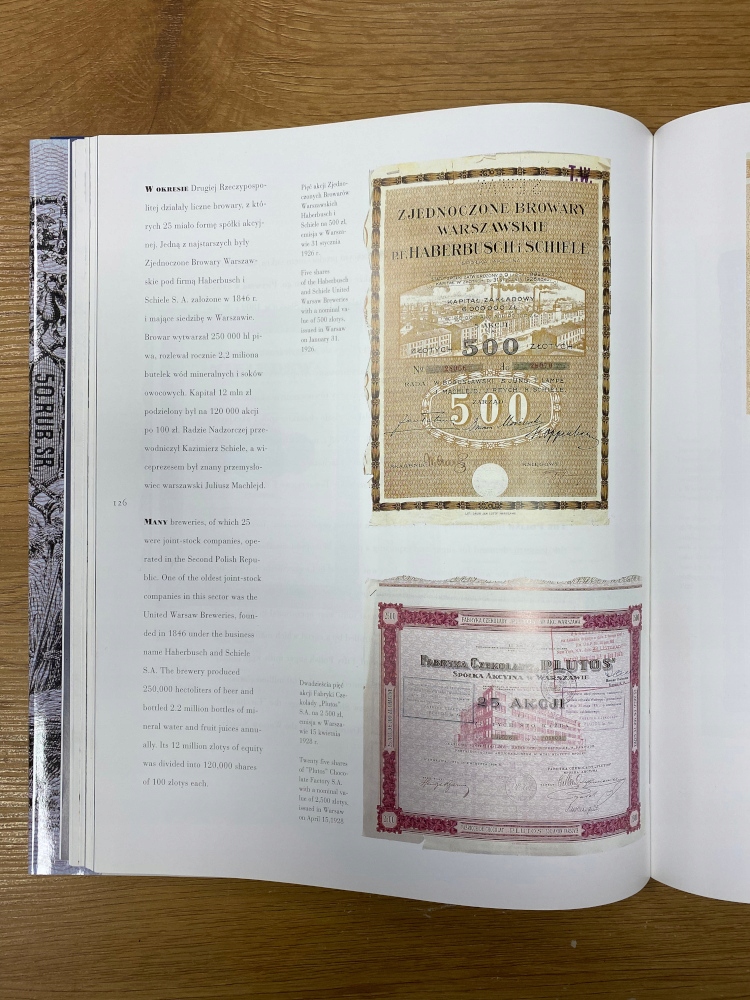 W OKRESIE Drugiej Rzeczypospo-
litej działały liczne browary, z któ-
rych 25 miało formę spółki akcyj-
nej. Jedną z najstarszych były
Zjednoczone Browary Warszaw-
skie pod firmą Haberbusch i
Schiele S. A. założone w 1846 r.
i mające siedzibę w Warszawie.
Browar wytwarzał 250 000 hl pi-
wa, rozlewał rocznie 2,2 miliona
butelek wód mineralnych i soków
owocowych. Kapitał 12 mln zł
podzielony był na 120 000 akcji
po 100 zł. Radzie Nadzorczej prze-
wodniczył Kazimierz Schiele, a wi-
ceprezesem był znany przemysło-
wiec warszawski Juliusz Machlejd.
126
MANY breweries, of which 25
were joint-stock companies, ope-
rated in the Second Polish Repu-
blic. One of the oldest joint-stock
companies in this sector was the
United Warsaw Breweries, foun-
ded in 1846 under the business
name Haberbusch and Schiele
S.A. The brewery produced
250,000 hectoliters of beer and
bottled 2.2 million bottles of mi-
neral water and fruit juices annu-
ally. Its 12 million zlotys of equity
was divided into 120,000 shares
of 100 zlotys each.
Pięć akcji Zjedno-
czonych Browarów
Warszawskich
Haberbusch i
Schiele na 500 zł,
emisja w Warsza-
wie 31 stycznia
1926 r.
Five shares
of the Haberbusch
and Schiele United
Warsaw Breweries
with a nominal va-
lue of 500 zlotys,
issued in Warsaw
on January 31,
1926.
Dwadzieścia pięć
akcji Fabryki Cze-
kolady „Plutos"
S.A. na 2 500 zł,
emisja w Warsza-
wie 15 kwietnia
1928 r.
Twenty five shares
of "Plutos" Choco-
late Factory S.A.
with a nominal va-
lue of 2,500 zlotys,
issued in Warsaw
on April 15, 1928.
T.W.
ZJEDNOCZONE BROWARY
WARSZAWSKIE
P.F. HABERBUSCH i SCHIELE
KAPITAŁ ZAKŁADOWY
ZŁOTYCH 500 ZŁOTYCH
500
FABRYKA CZEKOLADY „PLUTOS"
SPÓŁKA AKCYJNA W WARSZAWIE
25 AKCJI
50 RUB. SR